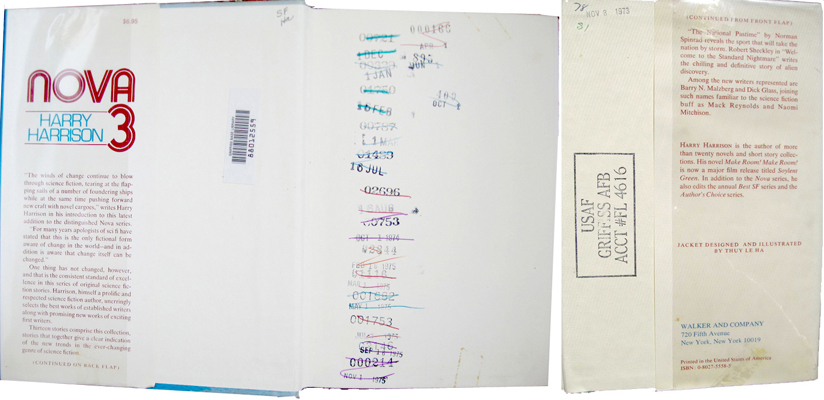 $6.95
SF
NOVA
HARRY
HARRISON 3
"The winds of change continue to blow
through science fiction, tearing at the flap-
ping sails of a number of foundering ships
while at the same time pushing forward
new craft with novel cargoes," writes Harry
Harrison in his introduction to this latest
addition to the distinguished Nova series.
"For many years apologists of sci fi have
stated that this is the only fictional form
aware of change in the world–and in ad-
dition is aware that change itself can be
changed."
One thing has not changed, however,
and that is the consistent standard of excel-
lence in this series of original science fic-
tion stories. Harrison, himself a prolific and
respected science fiction author, unerringly
selects the best works of established writers
along with promising new works of exciting
first writers.
Thirteen stories comprise this collection,
stories that together give a clear indication
of the new trends in the ever-changing
genre of science fiction.
(CONTINUED ON BACK FLAP)
1 DEC
1 JAN
18 FEB
18 JUL
02696
00753
OCT 1 1974
FEB 18 1975
001692
001753
SEP 1975
000214
NOV 1 1975
NOV 3 1975
USAF
GRIFFISS AFB
ACCT #FL 4616
(CONTINUED FROM FRONT FLAP)
"The National Pastime" by Norman
Spinrad reveals the sport that will take the
nation by storm. Robert Sheckley in "Wel-
come to the Standard Nightmare" writes
the chilling and definitive story of alien
discovery.
Among the new writers represented are
Barry N. Malzberg and Dick Glass, joining
such names familiar to the science fiction
buff as Mack Reynolds and Naomi
Mitchison.
HARRY HARRISON is the author of more
than twenty novels and short story collec-
tions. His novel Make Room! Make Room!
is now a major film release titled Soylent
Green. In addition to the Nova series, he
also edits the annual Best SF series and the
Author's Choice series.
JACKET DESIGNED AND ILLUSTRATED
BY THUY LE HA
WALKER AND COMPANY
720 Fifth Avenue
New York, New York 10019
Printed in the United States of America
ISBN: 0-8027-5538-5